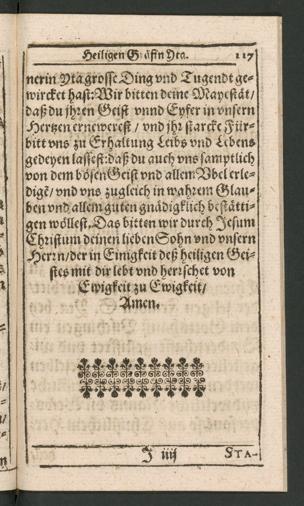 Heiligen Gräfin Yta. 117
nerin Yta grosse Ding vnd Tugendt ge-
wircket hast: Wir bitten deine Mayestät/
daß du jhren Geist vnnd Eyfer in vnsern
Hertzen ernewerest / vnd jhr starcke Für-
bitt vns zu Erhaltung Leibs vnd Lebens
gedeyen lassest: daß du auch vns samptlich
von dem bösen Geist vnd allem Vbel erle-
digē/ vnd vns zugleich in wahrem Glau-
ben vnd allem guten gnädigklich bestätti-
gen wöllest. Das bitten wir durch Jesum
Christum deinen lieben Sohn vnd vnsern
Herrn/ der in Einigkeit deß heiligen Gei-
stes mit dir lebt vnd herrschet von
Ewigkeit zu Ewigkeit/
Amen.
J iiij STA-